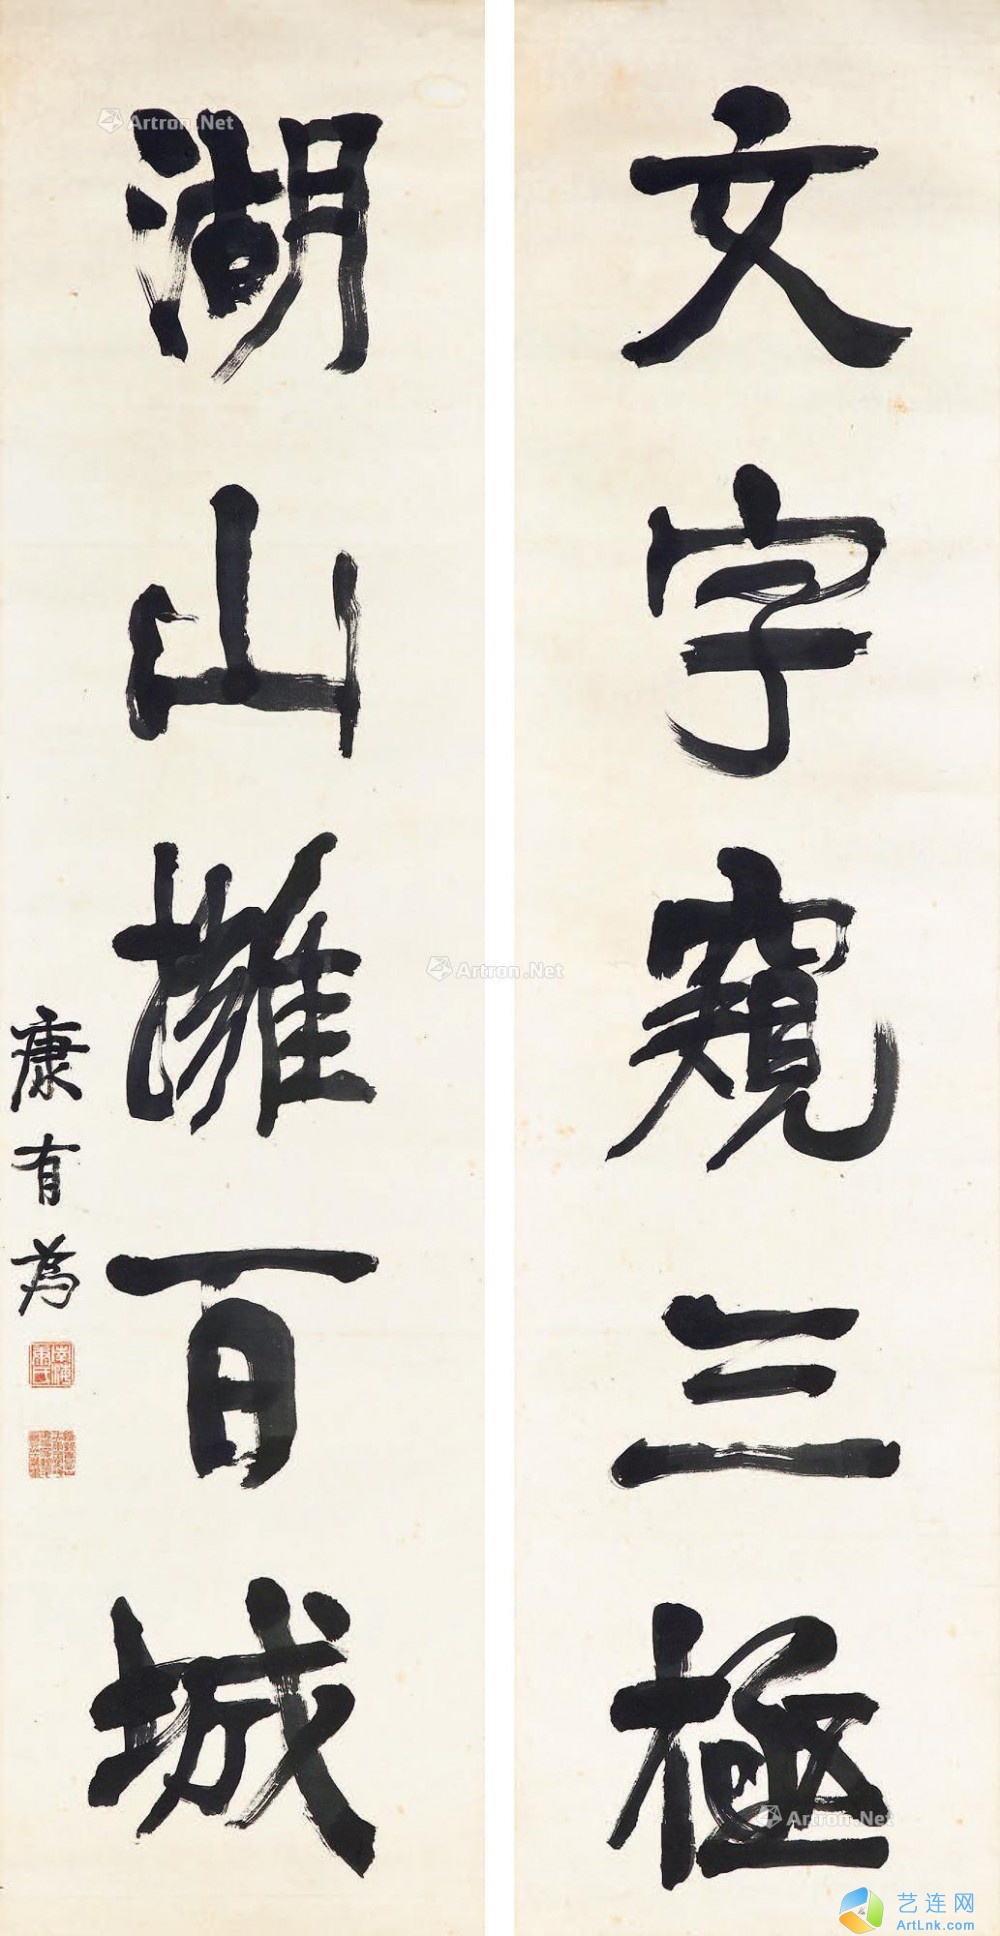 文字窺三極
湖山擁百城
康有為
南海康氏
Artron.Net
Artron.Net
Artron.Net
艺连网
ArtLnk.com